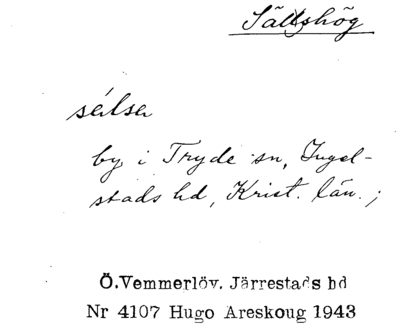 Sältshög
sélsa
by i Tryde sn, Ingel-
stads hd, Krist. län. ;
Ö.Vemmerlöv. Järrestads hd
Nr 4107 Hugo Areskoug 1943